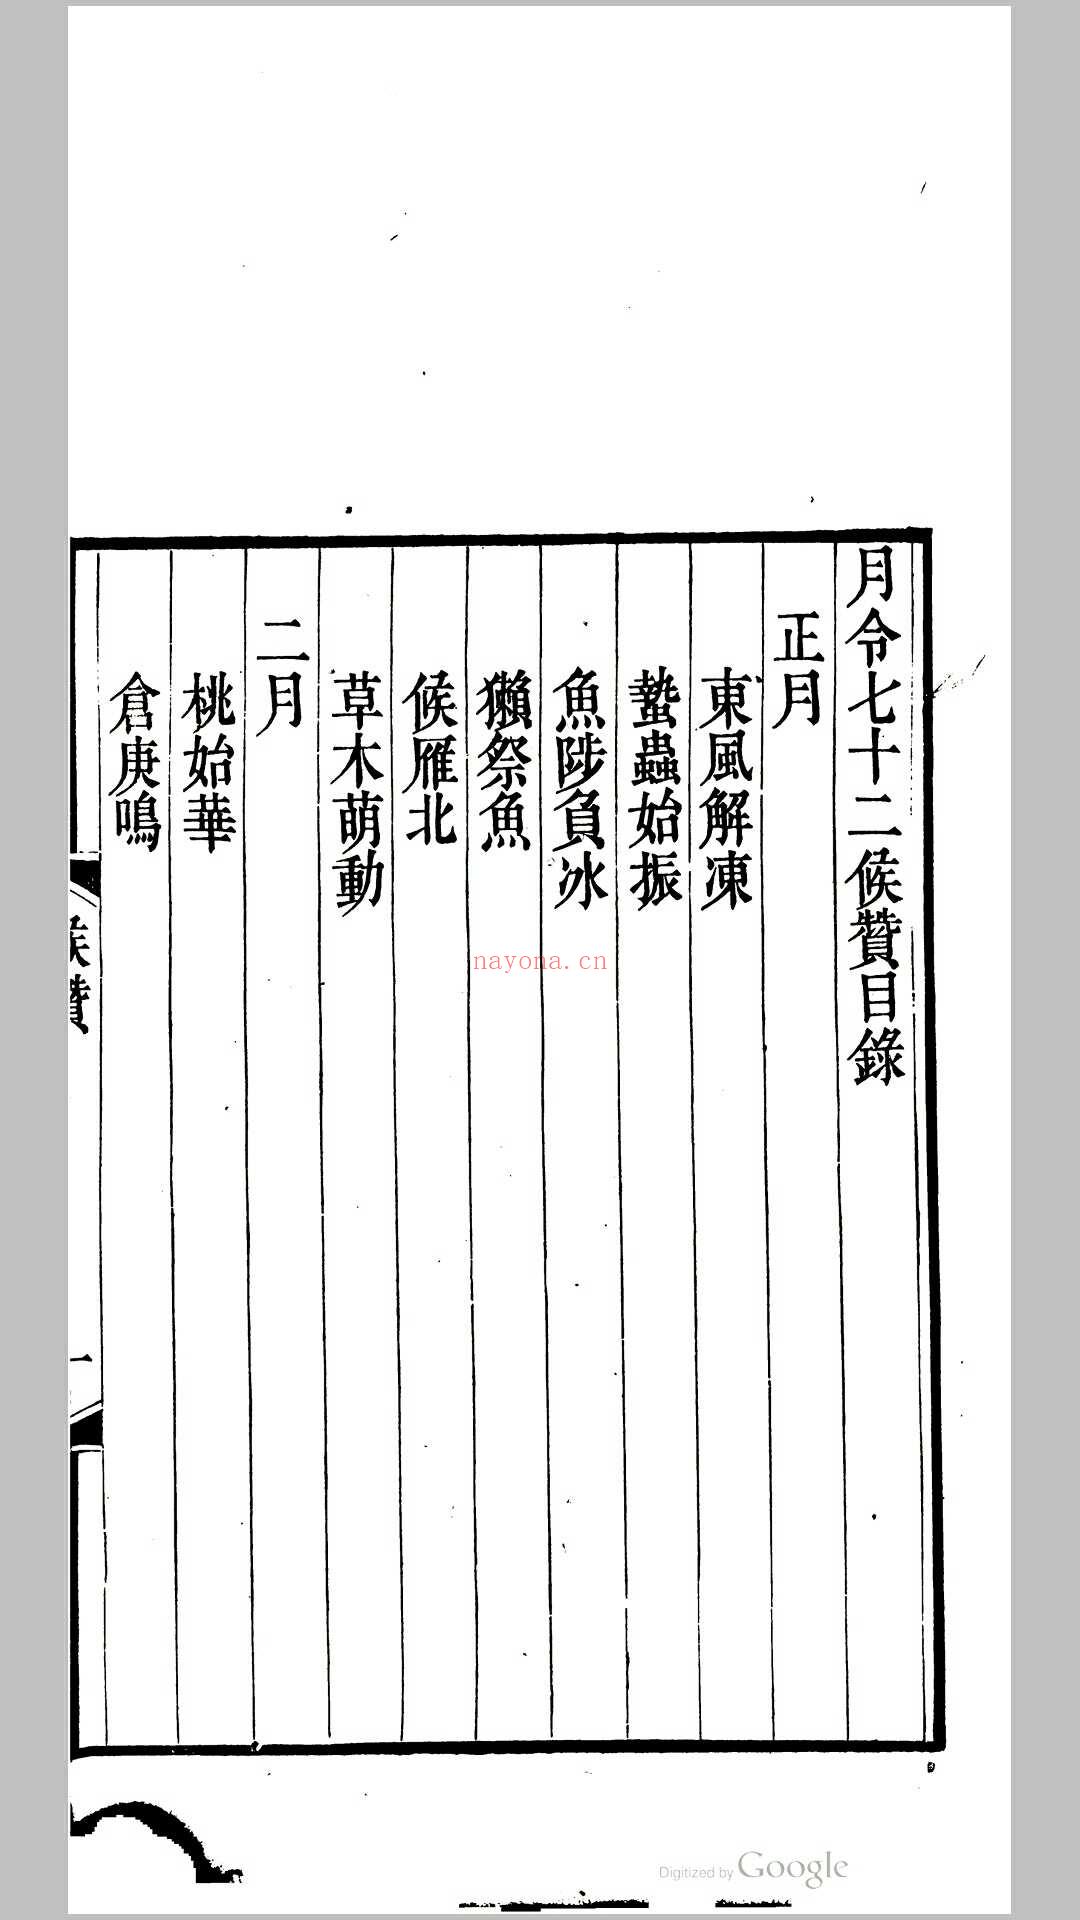 月令七十二候贊目錄
正月
東風解凍
蟄蟲始振
魚陟負冰
獺祭魚
候雁北
草木萌動
二月
桃始華
倉庚鳴
候贊
一
nayona.cn
Digitized by Google